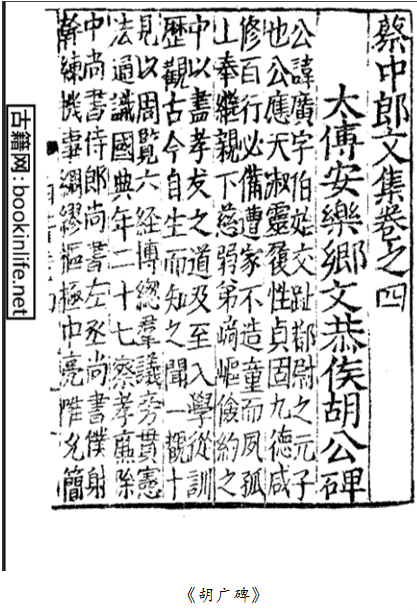 蔡中郎文集卷之四
太傅安樂鄉文恭侯胡公碑
公諱廣字伯始交趾都尉之元子
也公應天淑靈履性貞固九德咸
修百行必備遭家不造童而夙孤
上奉繼親下慈弱弟崎嶇儉約之
中以盡孝友之道及至入學從訓
歷觀古今自生而知之聞一覩十
見以周覽六經博總羣議旁貫憲
法通識國典年二十七察孝廉除
中尚書侍郎尚書左丞尚書僕射
幹練機事綢繆樞極中亮惟允簡
古籍网:bookinlife.net
《胡广碑》